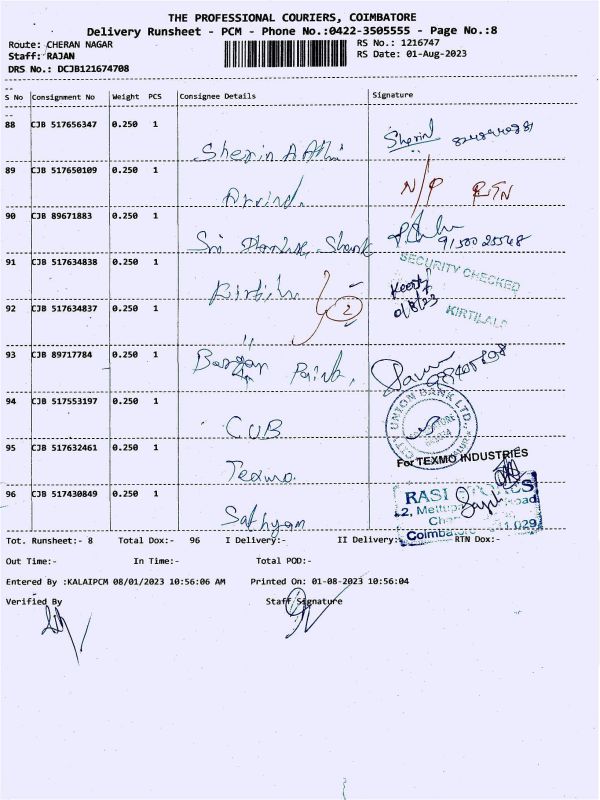 THE PROFESSIONAL COURIERS, COIMBATORE
Delivery Runsheet - PCM - Phone No.:0422-3505555 - Page No.:8
Route: CHERAN NAGAR RS No.: 1216747
Staff: RAJAN RS Date: 01-Aug-2023
DRS No.: DCJB121674708
S No Consignment No Weight PCS Consignee Details Signature
88 CJB 517656347 0.250 1 Sherin A Athi Sherin
89 CJB 517650109 0.250 1 Arvind. N/P RTN
90 CJB 89671883 0.250 1 Sri Shank 9150025568
91 CJB 517634838 0.250 1 Kirtilal SECURITY CHECKED
92 CJB 517634837 0.250 1 " 2 KIRTILALS
93 CJB 89717784 0.250 1 Paint,
94 CJB 517553197 0.250 1 CUB CITY UNION BANK LTD.,
95 CJB 517632461 0.250 1 Texmo. For TEXMO INDUSTRIES
96 CJB 517430849 0.250 1 Sathyam RASI
Tot. Runsheet:- 8 Total Dox:- 96 I Delivery:- II Delivery:- RTN Dox:-
Out Time:- In Time:- Total POD:-
Entered By :KALAIPCM 08/01/2023 10:56:06 AM Printed On: 01-08-2023 10:56:04
Verified By Staff Signature